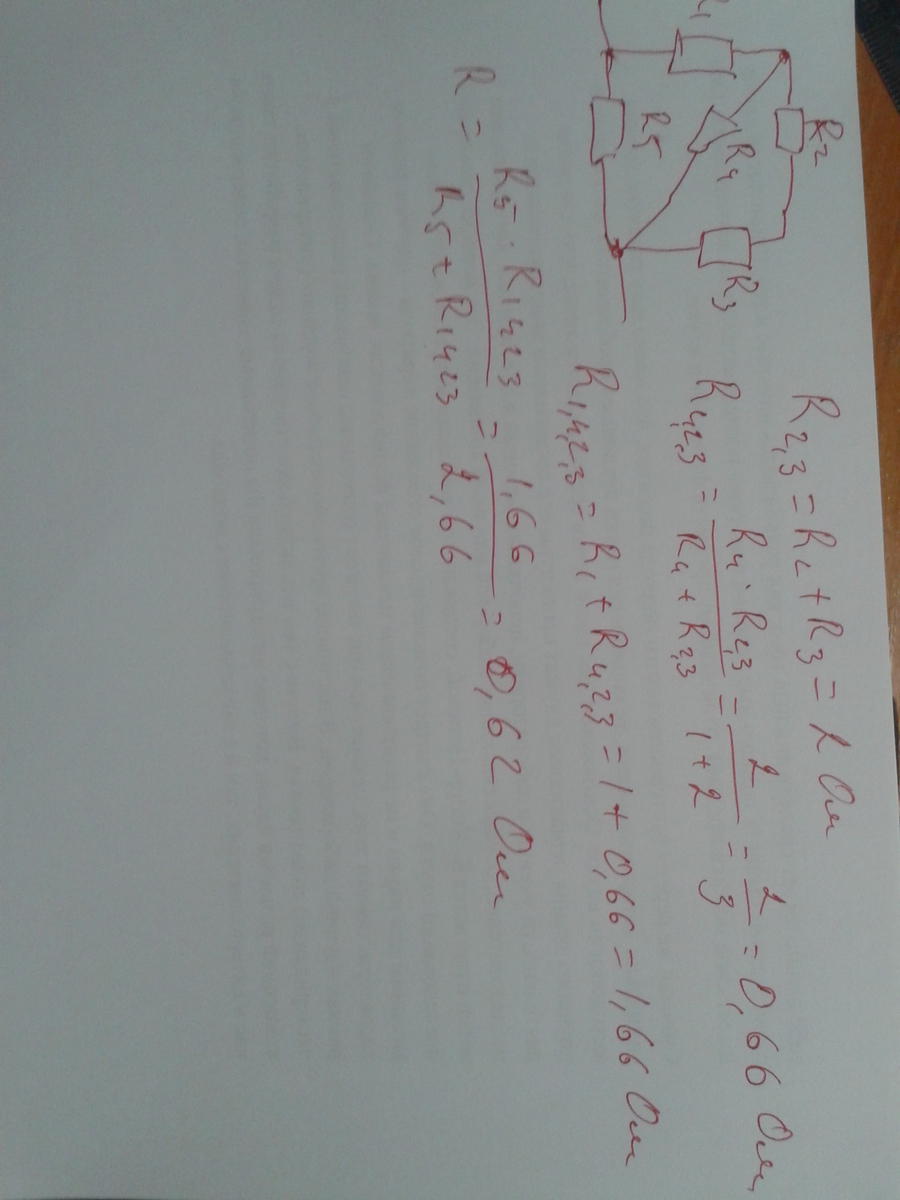 R1
R2
R4
R5
R3
R2,3 = R2 + R3 = 2 Ом
R4,2,3 = R4 · R2,3 / R4 + R2,3 = 2 / 1 + 2 = 2 / 3 = 0,66 Ом
R1,4,2,3 = R1 + R4,2,3 = 1 + 0,66 = 1,66 Ом
R = R5 · R1423 / R5 + R1423 = 1,66 / 2,66 = 0,62 Ом